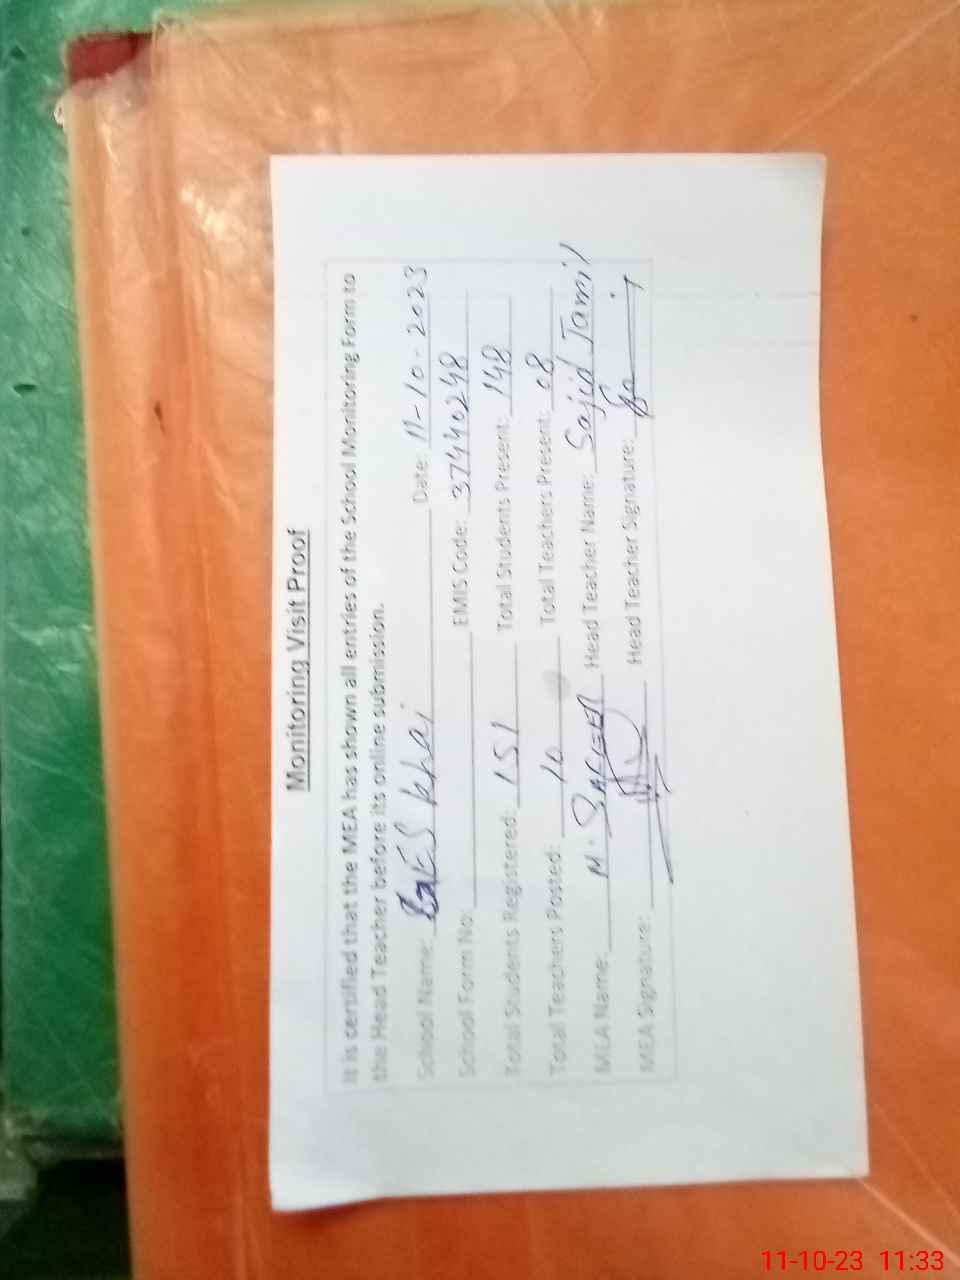 Monitoring Visit Proof
It is certified that the MEA has shown all entries of the School Monitoring Form to
the Head Teacher before its online submission.
School Name: GES Khai Date: 11-10-2023
School Form No: EMIS Code: 37440248
Total Students Registered: 151 Total Students Present: 148
Total Teachers Posted: 10 Total Teachers Present: 08
MEA Name: M. Head Teacher Name: Sajid Jamil
MEA Signature: Head Teacher Signature:
11-10-23 11:33